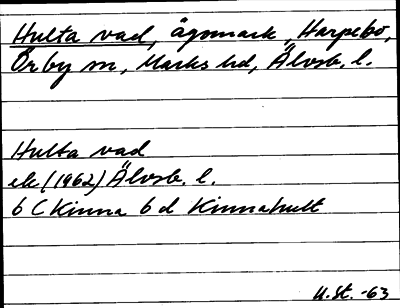 Hulta vad, ägomark, Harpebo,
Örby sn, Marks hd, Älvsb. l.
Hulta vad
ek (1962) Älvsb. l.
6 C Kinna 6 d Kinnahult
U.St. -63